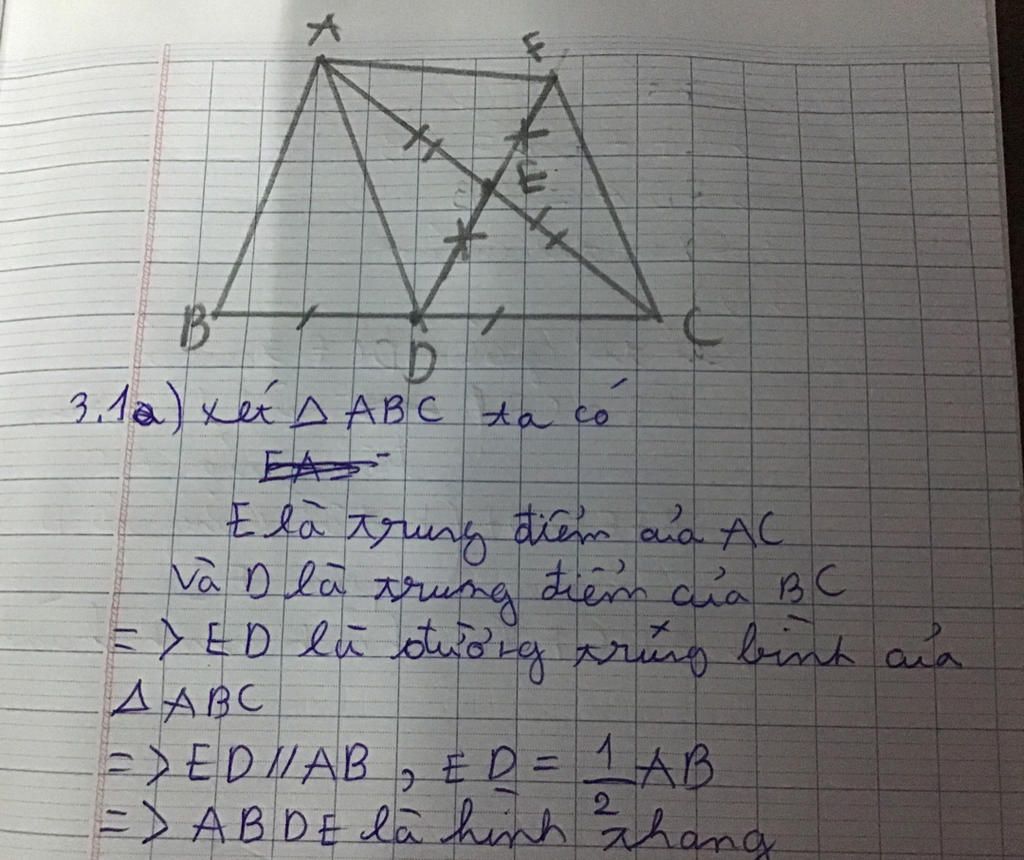 A F
E
B D C
3.1a) xét Δ ABC ta có
E là trung điểm của AC
và D là trung điểm của BC
=> ED là đường trung bình của
Δ ABC
=> ED // AB, ED = 1/2 AB
=> ABDE là hình thang